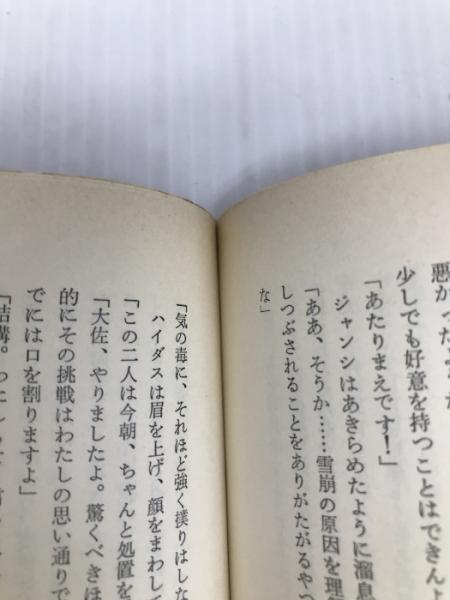 少しでも好意を持つことはできんよ
「あたりまえです！」
ジャンシはあきらめたように溜息
「ああ、そうか……雪崩の原因を理
しつぶされることをありがたがるやつ
な」
「気の毒に、それほど強く撲りはしな
ハイダスは眉を上げ、顔をまわして
「この二人は今朝、ちゃんと処置を
「大佐、やりましたよ。驚くべきほ
的にその挑戦はわたしの思い通りで
でには口を割りますよ」
「結構。